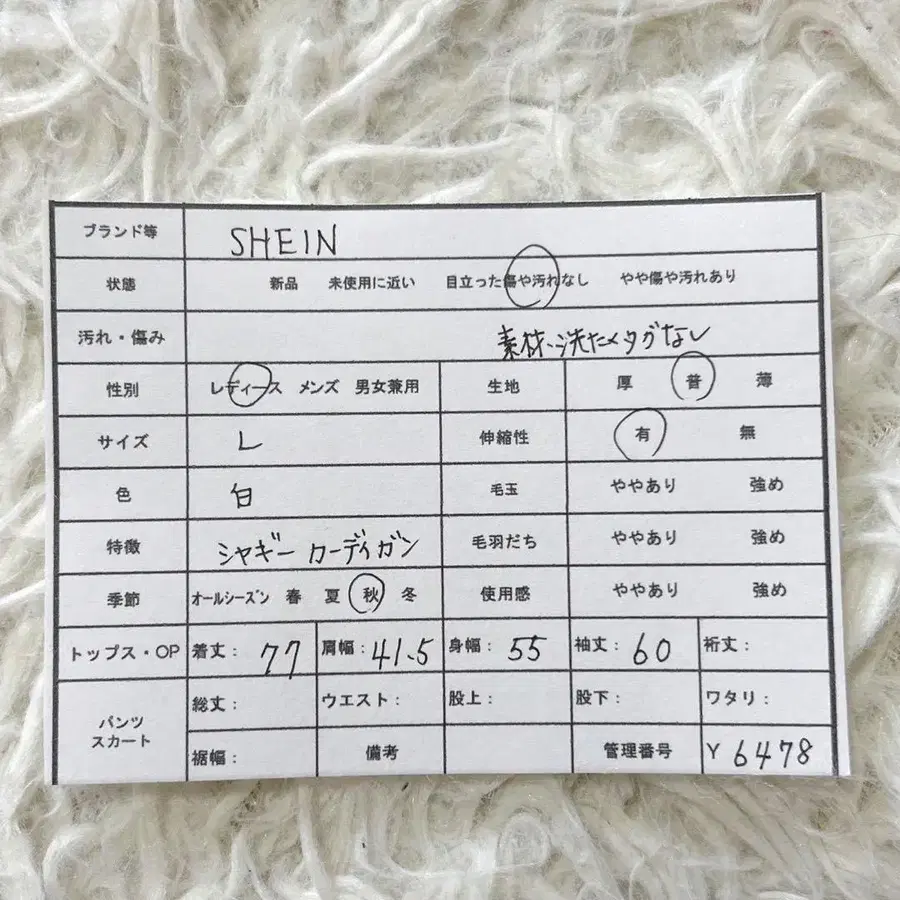 ブランド等 SHEIN
状態 新品 未使用に近い 目立った傷や汚れなし やや傷や汚れあり
汚れ・傷み 素材、洗たくタグなし
性別 レディース メンズ 男女兼用 生地 厚 普 薄
サイズ L 伸縮性 有 無
色 白 毛玉 ややあり 強め
特徴 シャギーカーディガン 毛羽だち ややあり 強め
季節 オールシーズン 春 夏 秋 冬 使用感 ややあり 強め
トップス・OP 着丈: 77 肩幅: 41.5 身幅: 55 袖丈: 60 裄丈:
パンツ スカート 総丈: ウエスト: 股上: 股下: ワタリ:
裾幅: 備考 管理番号 Y 6478